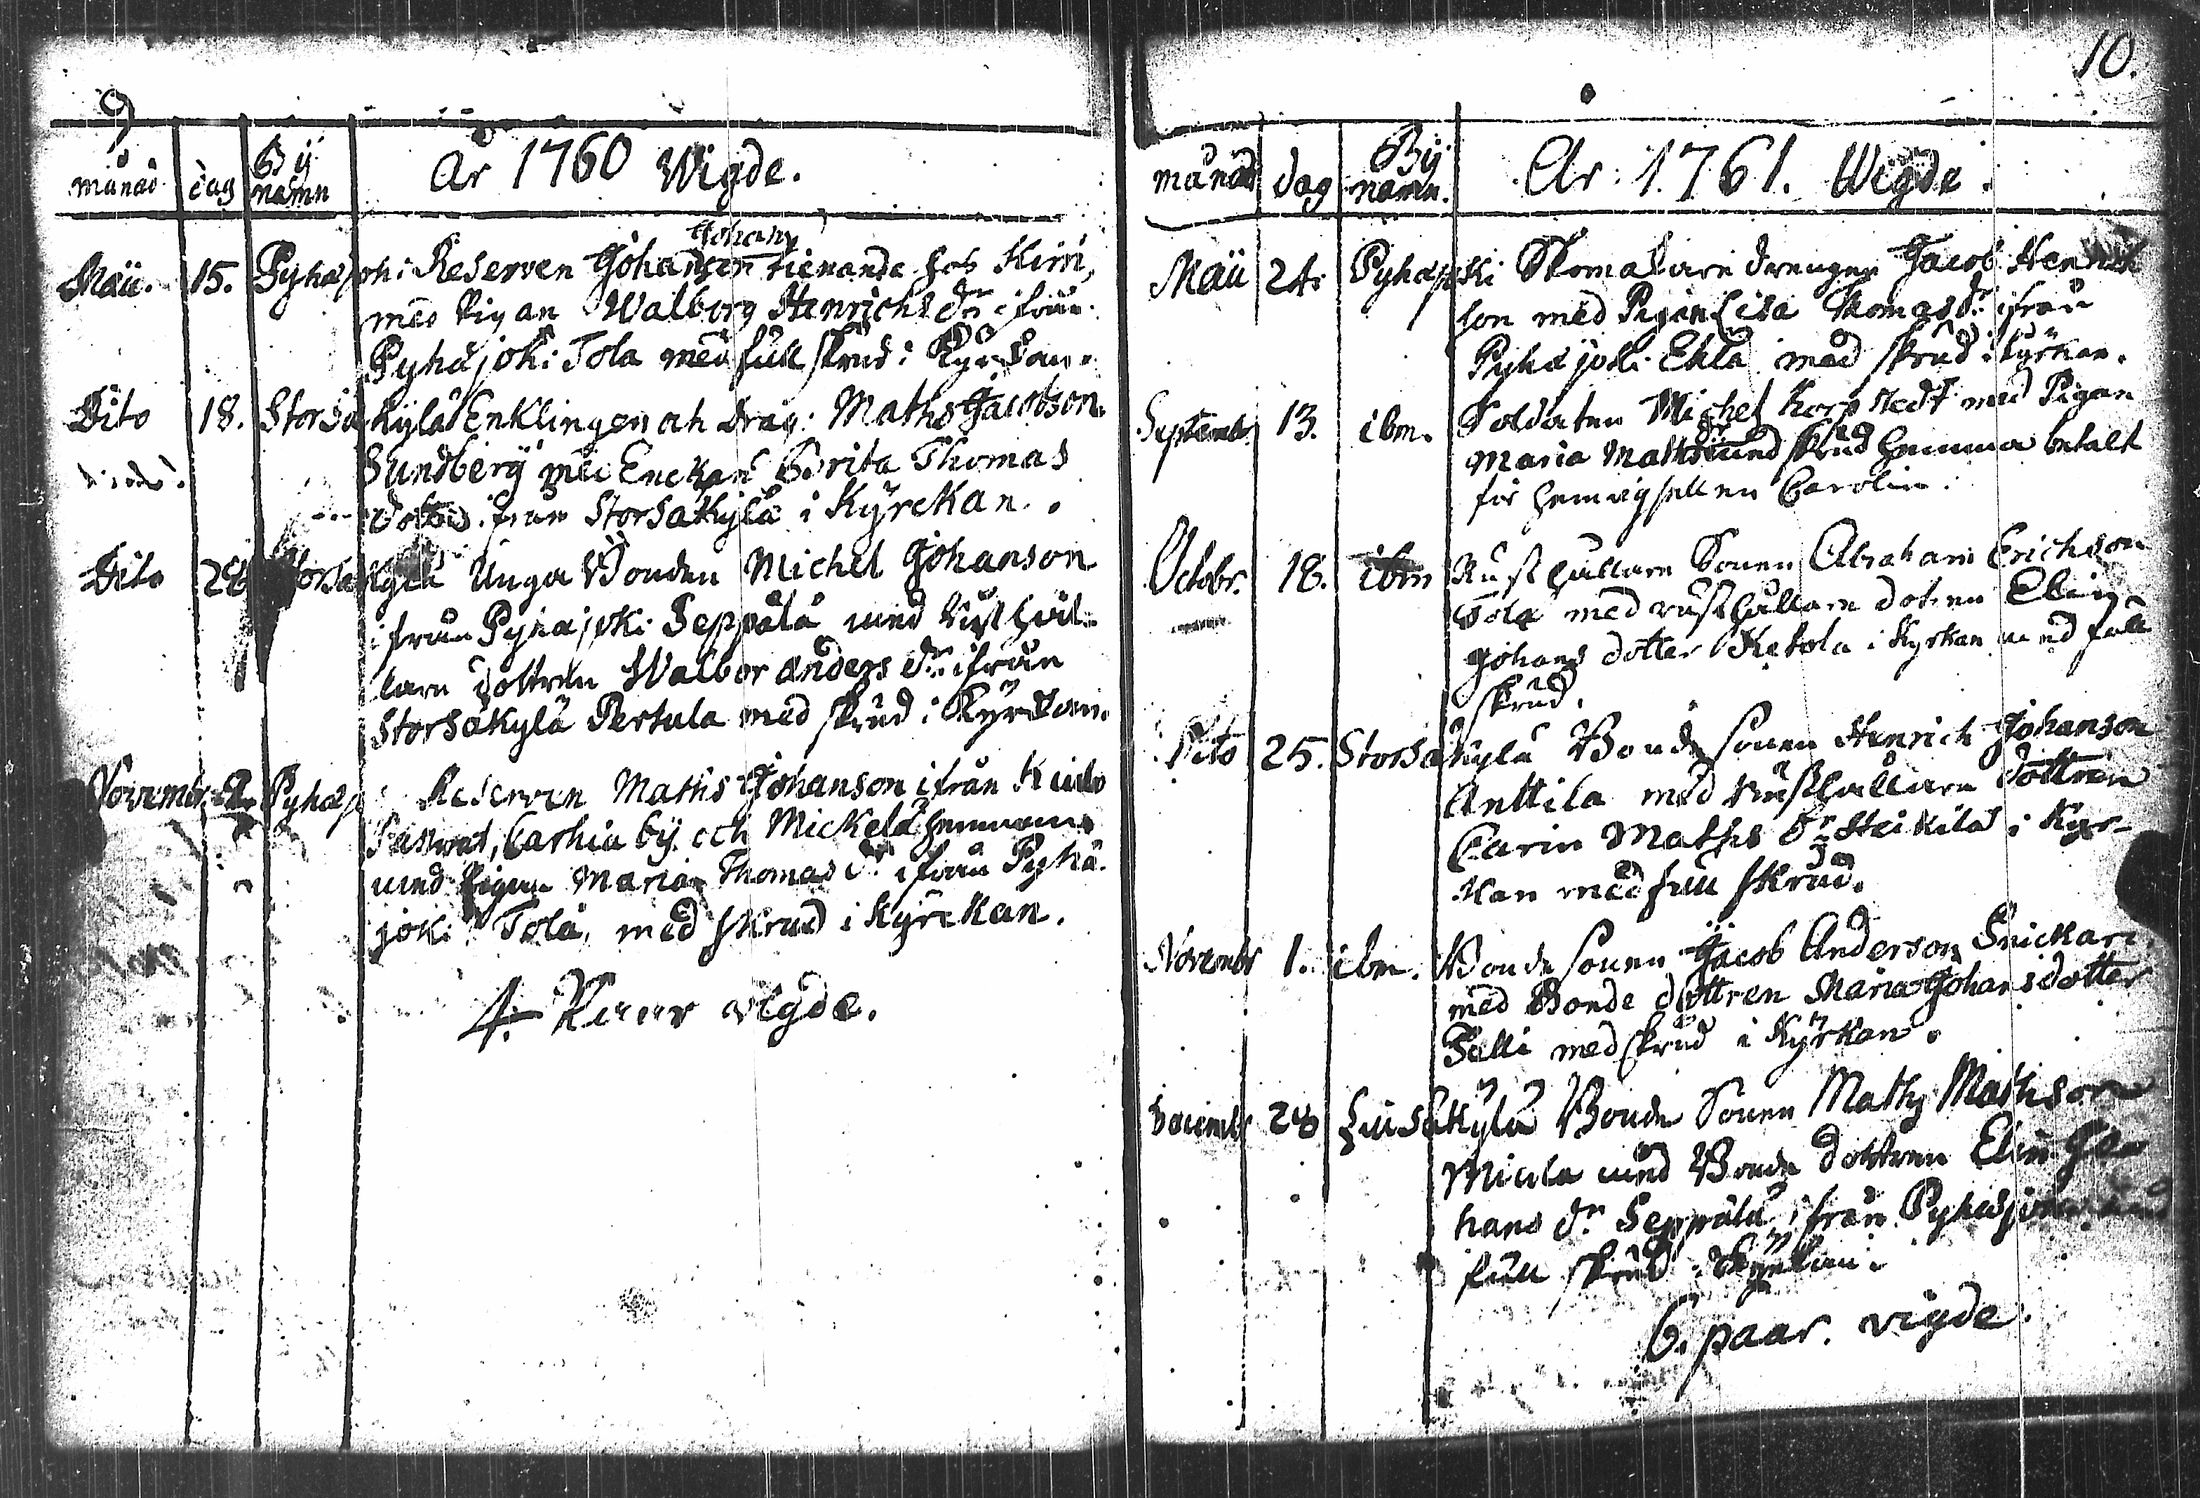 9
månad dag By namn År 1760 Wigde.
Johans
Maii. 15. Pyhäjoki Reserven Johanson tienande hos Kirri,
med Pigan Walborg Henrichs dr ifrån
Pyhäjoki Tola med full skrud i Kyrckan.
Dito 18. Storsäkylä Enklingen och Drag: Maths Jacobson
Sundberg med Enckan Brita Thomas
dotter ifrån Storsäkylä i Kyrckan.
Dito 26 Storsäkylä Unga Bonden Michel Johanson
ifrån Pyhäjoki Seppälä med Rusthål-
lare dottren Walbor Anders dr ifrån
Storsäkylä Pertula med skrud i Kyrckan.
November 2. Pyhäj: Reserven Maths Johanson ifrån
Carhia by och Mickelä hemman
med Pigan Maria Thomas dr ifrån Pyhä-
joki Tola, med skrud i Kyrckan.
4. Paar vigde.
10.
månad dag By namn. År 1761. Wigde.
Maii 24. Pyhäjoki Skomakare drengen Jacob Henrich
son med Pigan Lisa Thomas dr ifrån
Pyhäjoki Ekla med skrud i kyrkan.
Septemb. 13. ibm. Soldaten Michel Korpstedt med Pigan
Maria Maths dr med skrud hemma betalt
för hemvigsellen Carolin.
Octobr. 18. ibm Rusthållare Sonen Abraham Erichson
Tola med rusthållare dotren Elin
Johans dotter Ketola i Kyrkan med full
skrud.
Dito 25. Storsäkylä Bonde sonen Henrich Johanson
Anttila med Rusthållare dottren
Carin Maths dr Heikilä i Kyr-
kan med full skrud.
Novembr 1. ibm. Bonde sonen Jacob Anderson Snickari
med Bonde dottren Maria Johansdotter
Pelli med skrud i Kyrkan.
28 Lillsäkylä Bonde Sonen Maths Mathson
Micola med Bonde dottren Elin Jo-
hans dr Seppälä ifrån Pyhäjoki med
full skrud i Kyrkan.
6. paar. vigde.